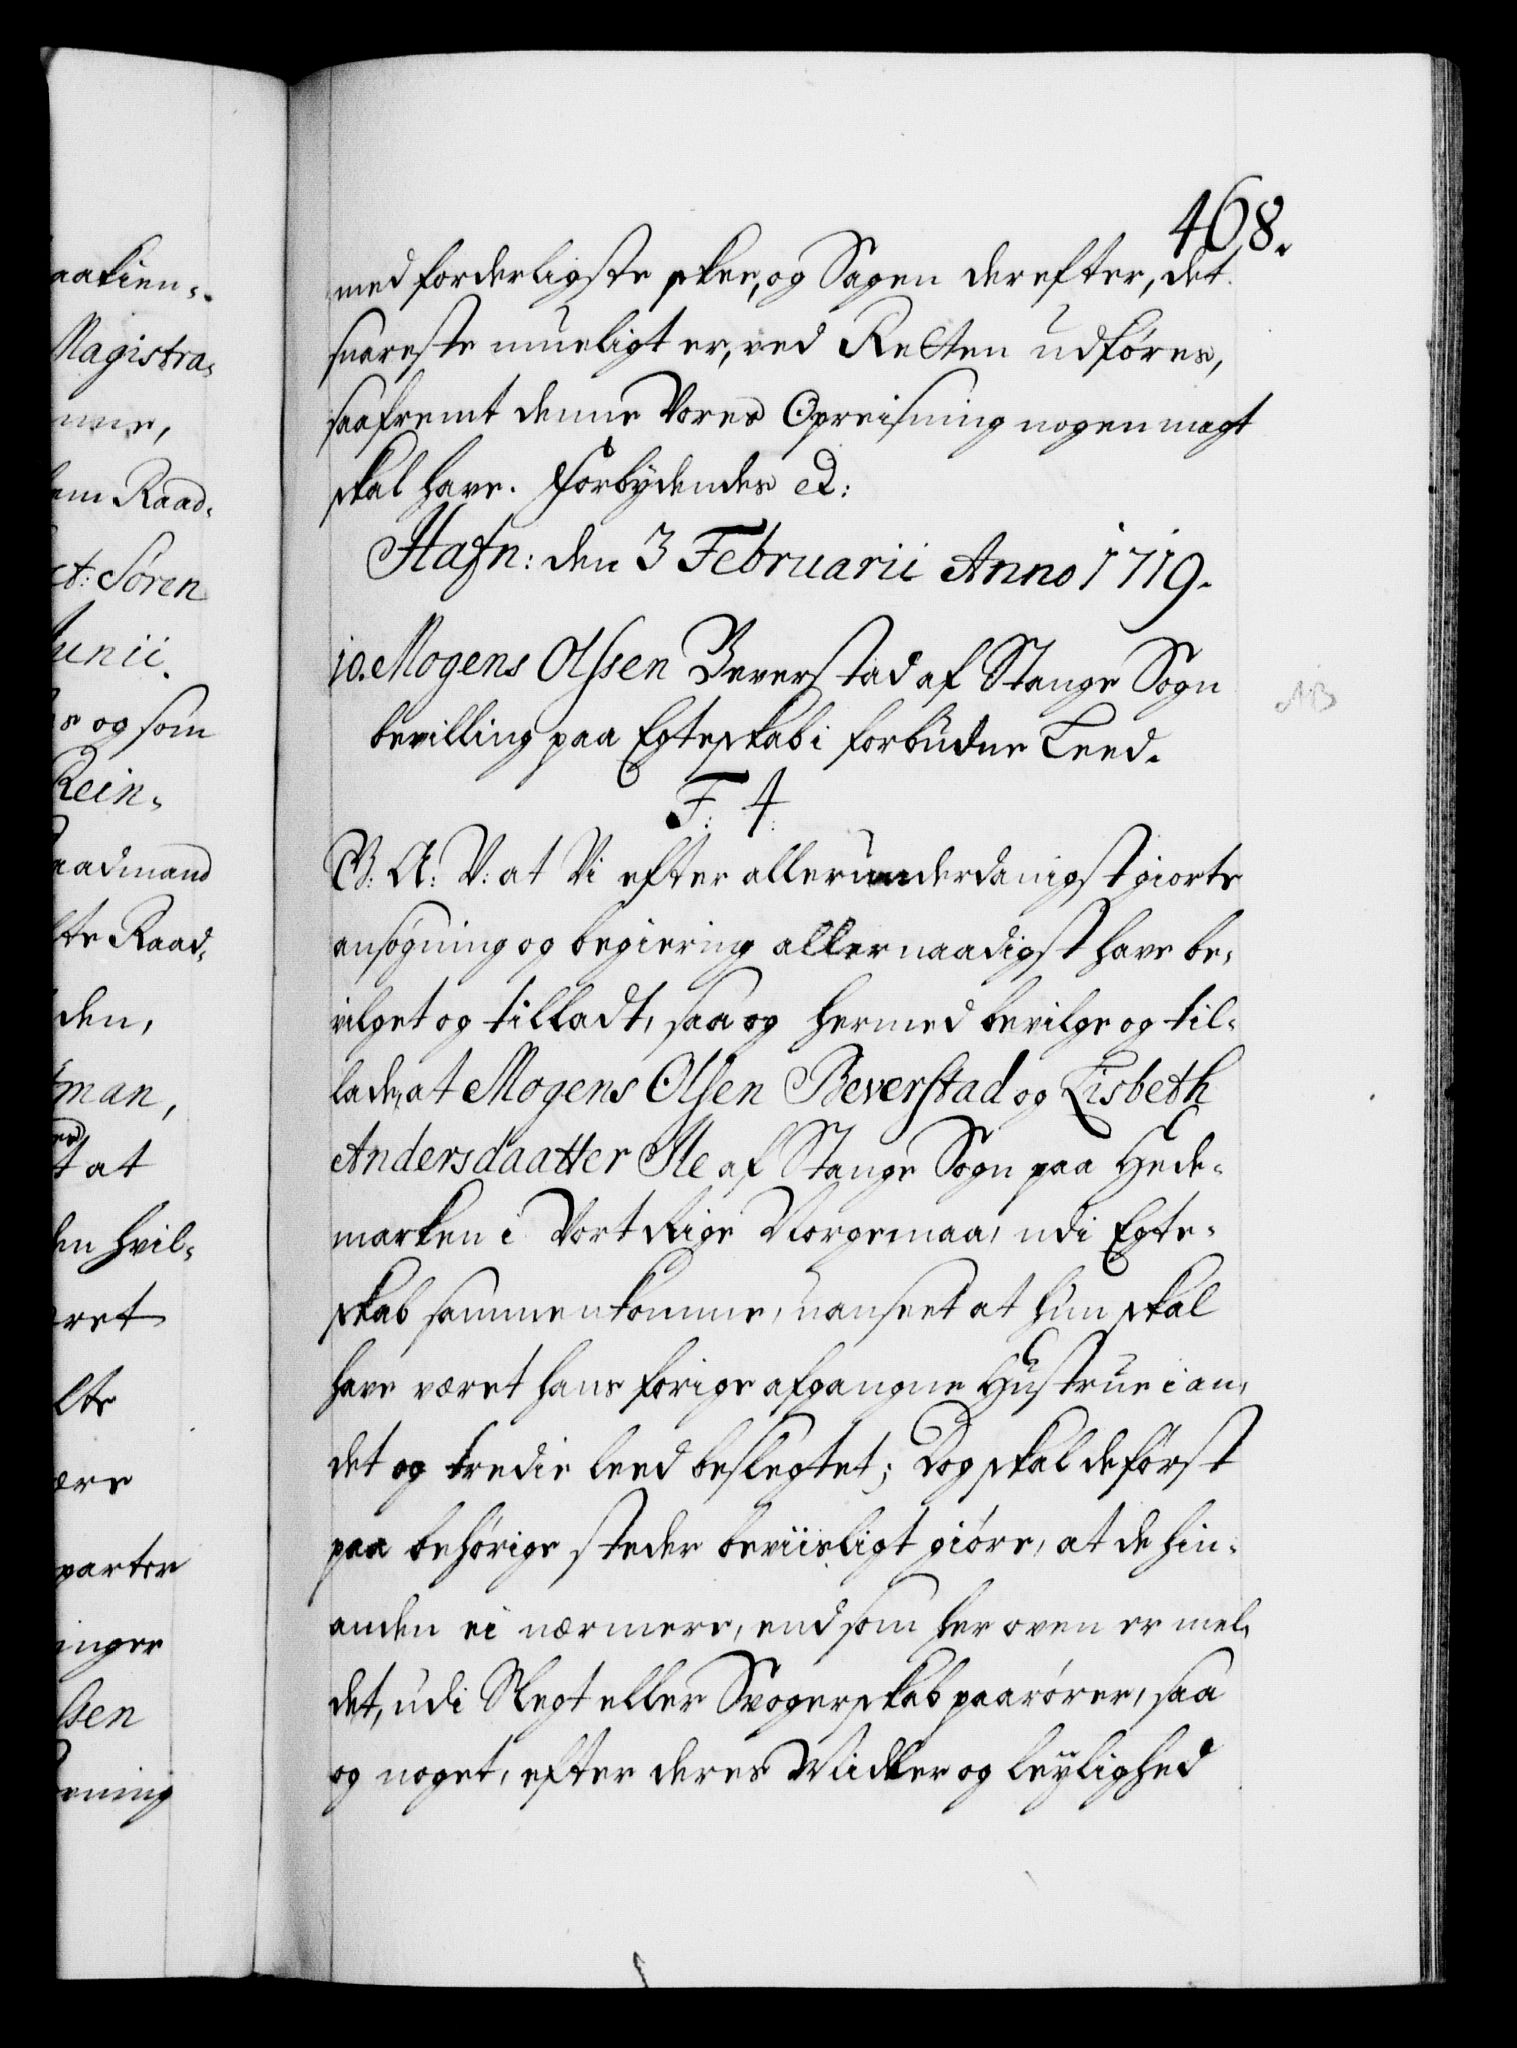 468.
med forderligste skee, og Sagen derefter, det
snareste mueligt er, ved Retten udføres,
saafremt denne Vores Opreisning nogen magt
skal have. Forbydendes etc:
Hafn: den 3 Februarii Anno 1719.
10. Mogens Olssen Beverstad af Stange Sogn
bevilling paa Egteskab i forbudne Leed.
F: 4.
G: A: V: at Vi efter allerunderdanigst giorte
ansøgning og begiering allernaadigst have be-
vilget og tilladt, saa og hermed bevilge og til-
lade, at Mogens Olssen Beverstad og Lisbeth
Andersdaatter Ile af Stange Sogn paa Hede-
marken i Vort Rige Norge maa, udi Egte-
skab sammenkomme, uanseet at hun skal
have været hans forige afgangne Hustrue i an-
det og tredie leed beslegtet; Dog skal de først
paa behørige steder beviisligt giøre, at de hin-
anden ei nærmere, end som her oven er mel-
det, udi Slegt eller Svogerskab paarører, saa
og noget, efter deres Midler og leylighed
NB
aakien-
Magistra-
Raad-
ct: Søren
Junii.
og som
Rein-
aadmand
lte Raad-
den,
tman,
at
en hvil-
ret
lte
ære
parter
inger
lsen